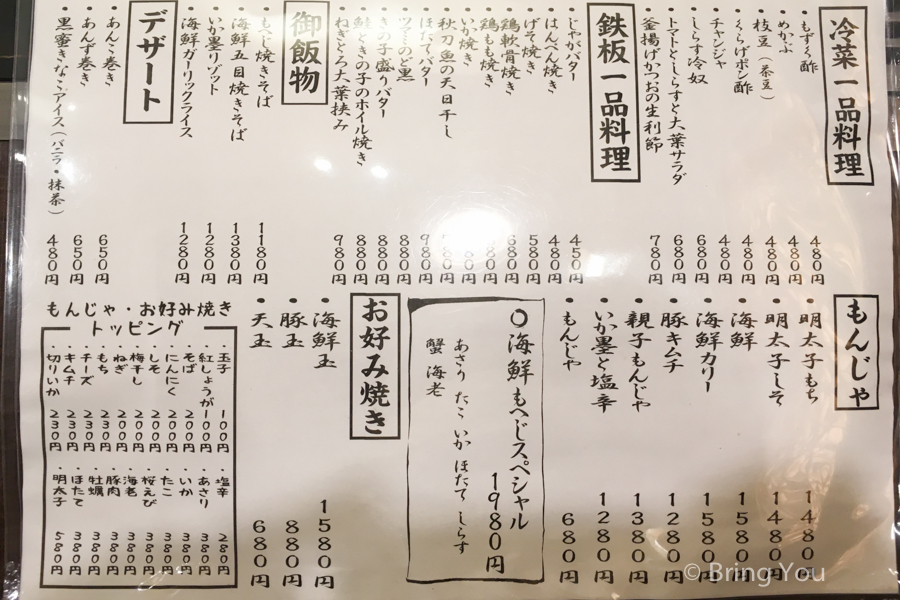 冷菜一品料理
・もずく酢 480円
・めかぶ 480円
・枝豆(茶豆) 480円
・くらげポン酢 480円
・チャンジャ 480円
・しらす冷奴 680円
・トマトとしらすと大葉サラダ 680円
・釜揚げかつおの生利節 780円
鉄板一品料理
・じゃがバター 450円
・はんぺん焼き 480円
・げそ焼き 580円
・鶏軟骨焼き 680円
・鶏もも焼き
・いか焼き
・秋刀魚の天日干し
・ほたてバター 980円
・ツブのどて黒 880円
・きの子盛りバター 880円
・鮭ときの子のホイル焼き 880円
・ねぎとろ大葉挟み 980円
御飯物
・もへじ焼きそば 1180円
・海鮮五目焼きそば 1380円
・いか墨リゾット 1280円
・海鮮ガーリックライス 1280円
デザート
・あんこ巻き 650円
・あんず巻き 650円
・黒蜜きなこアイス(バニラ・抹茶) 480円
もんじゃ
・明太子もち 1480円
・明太子しそ 1480円
・海鮮 1580円
・海鮮カリー 1580円
・豚キムチ 1280円
・親子もんじゃ 1380円
・いか墨と塩辛 1280円
・もんじゃ 680円
〇海鮮もへじスペシャル 1980円
あさり たこ いか ほたて しらす
蟹 海老
お好み焼き
・海鮮玉 1580円
・豚玉 880円
・天玉 680円
もんじゃ・お好み焼き
トッピング
・玉子 100円
・紅しょうが 100円
・そば 200円
・にんにく 200円
・しそ 200円
・梅干し 200円
・ねぎ 200円
・もち 230円
・チーズ 230円
・キムチ 230円
・切りいか 230円
・塩辛 280円
・あさり 380円
・いか 380円
・たこ 380円
・桜えび 380円
・海老 380円
・豚肉 380円
・牡蠣 380円
・ほたて 380円
・明太子 580円
© Bring You